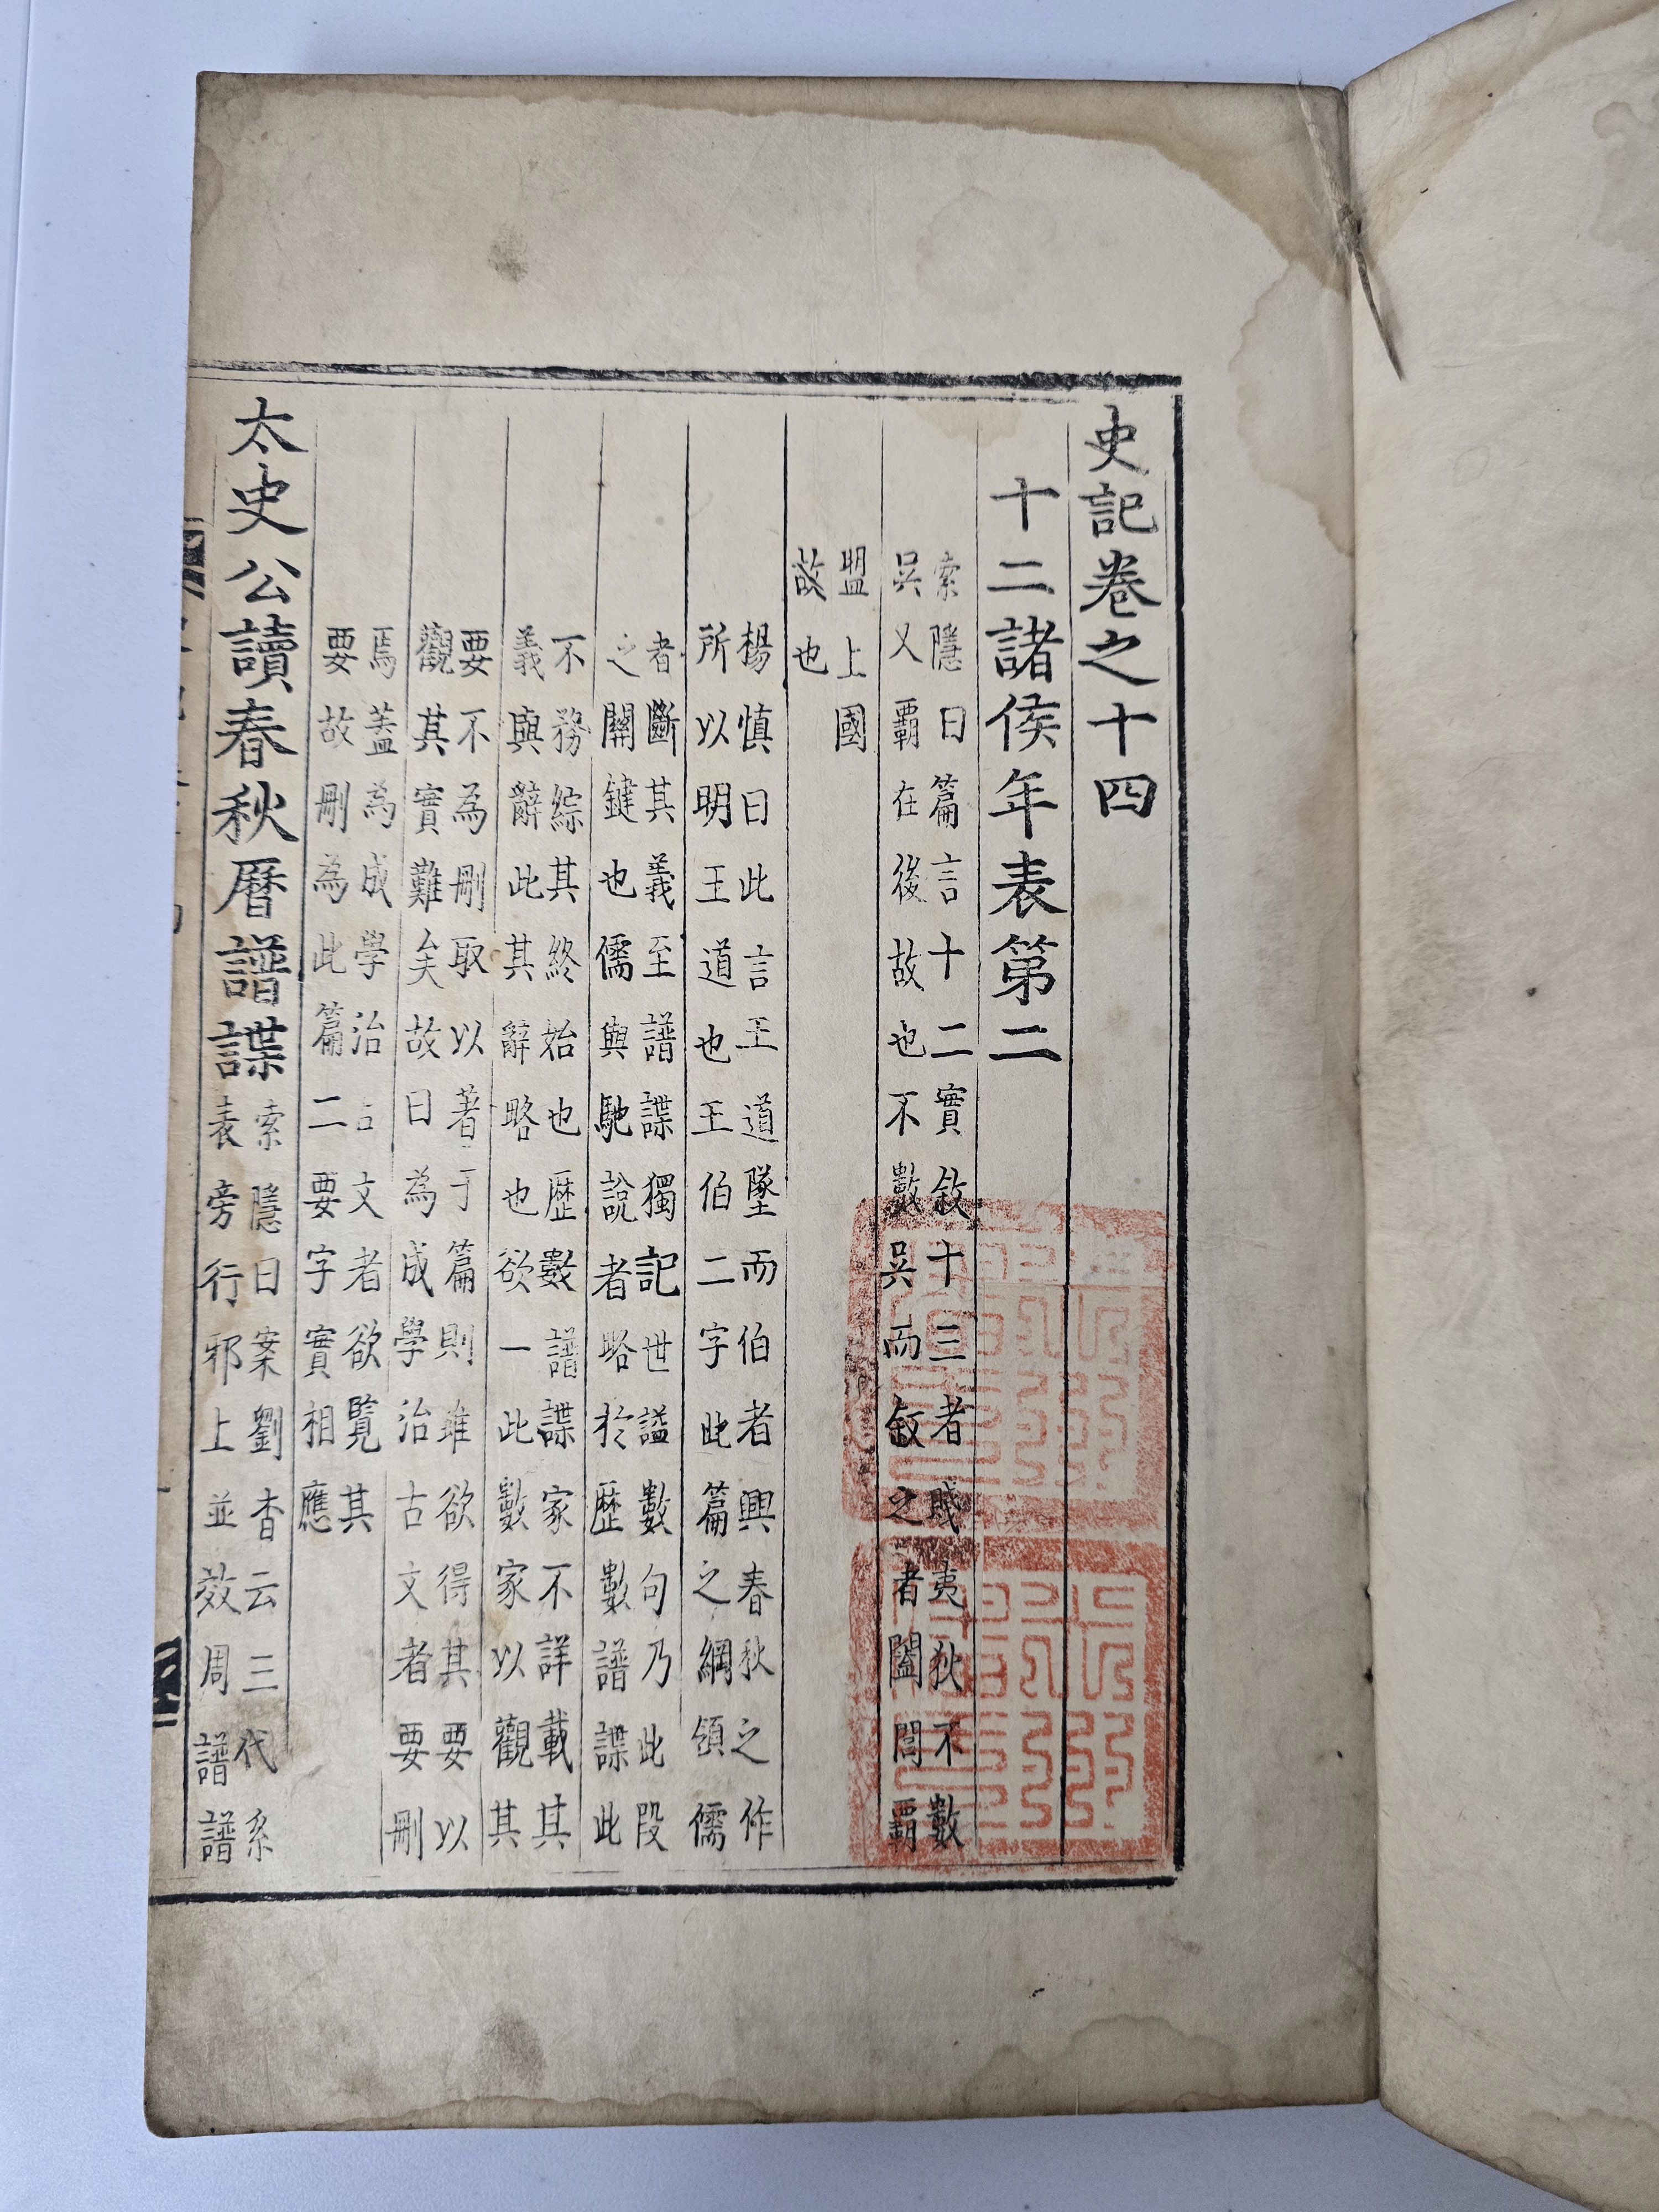 史記卷之十四
十二諸侯年表第二
索隱曰篇言十二實敘十三者賤夷狄不數
吳又霸在後故也不數吳而敘之者闔閭霸
盟上國
故也
楊慎曰此言王道墜而伯者興春秋之作
所以明王道也王伯二字此篇之綱領儒
者斷其義至譜諜獨記世謚數句乃此段
之關鍵也儒與馳說者略於歷數譜諜此
不務綜其終始也歷數譜諜家不詳載其
義與辭此其辭略也欲一此數家以觀其
要不為刪取以著于篇則雖欲得其要以
觀其實難矣故曰為成學治古文者要刪
焉蓋為成學治古文者欲覽其
要故刪為此篇二要字實相應
太史公讀春秋曆譜諜
索隱曰案劉杳云三代系
表旁行邪上並效周譜譜